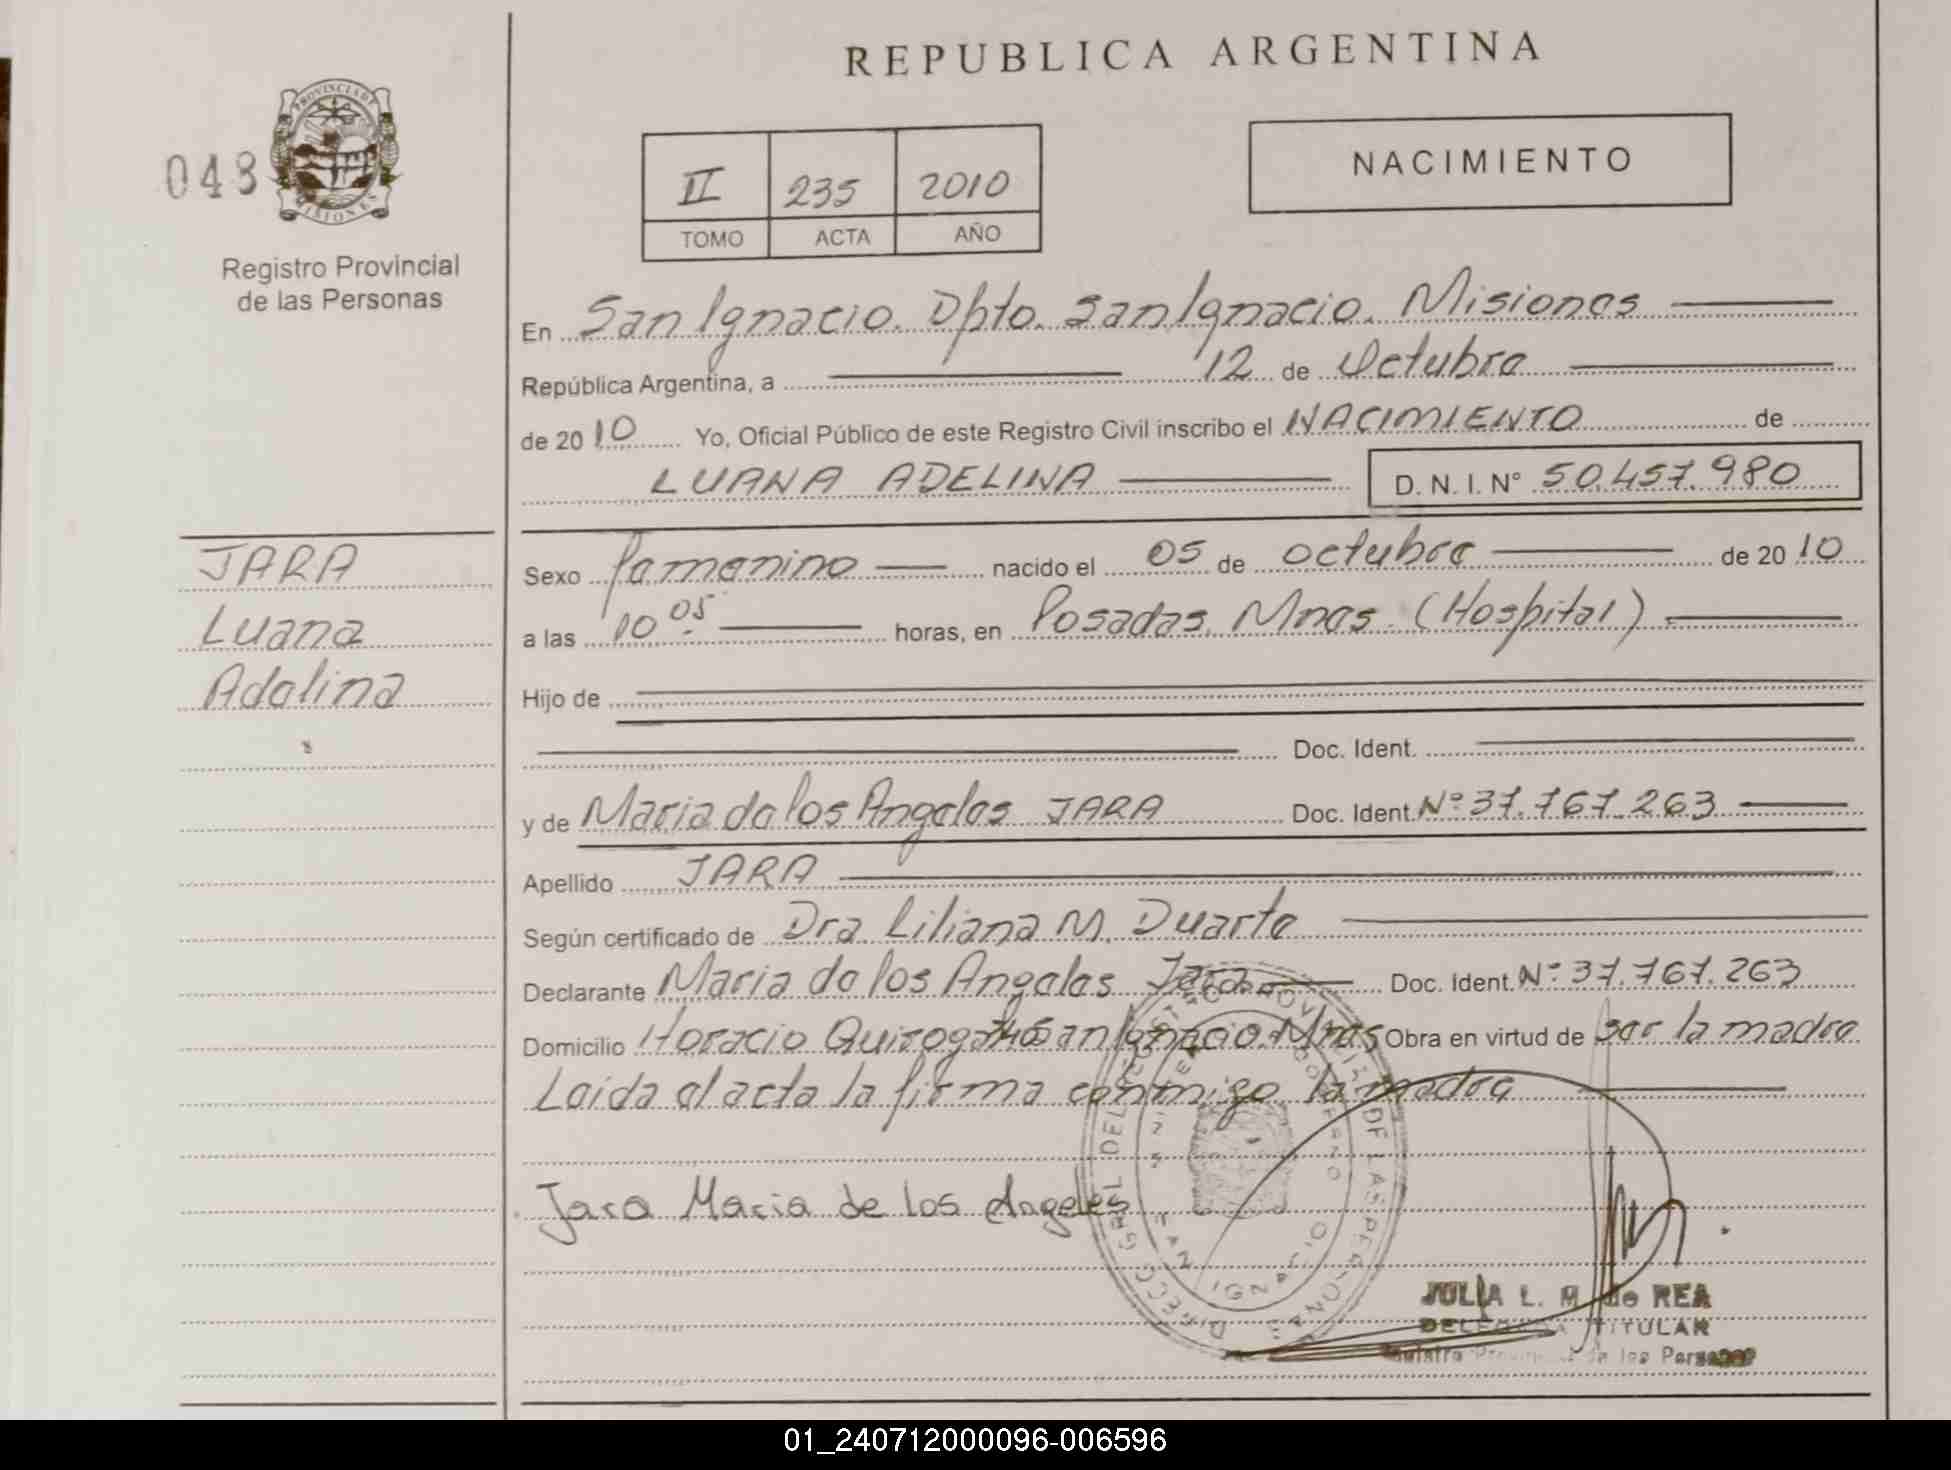 REPUBLICA ARGENTINA
048
PROVINCIA DE MISIONES
Registro Provincial
de las Personas
II 235 2010
TOMO ACTA AÑO
NACIMIENTO
En San Ignacio. Dpto. San Ignacio. Misiones
República Argentina, a 12 de Octubre
de 2010 Yo, Oficial Público de este Registro Civil inscribo el NACIMIENTO de
LUANA ADELINA D.N.I. N° 50.457.980
JARA
Luana
Adelina
Sexo femenino nacido el 05 de octubre de 2010
a las 10 05 horas, en Posadas. Mnes. (Hospital)
Hijo de
Doc. Ident.
y de Maria de los Angeles JARA Doc. Ident. Nº 37.767.263
Apellido JARA
Según certificado de Dra. Liliana M. Duarte
Declarante Maria de los Angeles Jara Doc. Ident. Nº 37.767.263
Domicilio Horacio Quiroga San Ignacio. Mnes Obra en virtud de ser la madre
Leida el acta la firma conmigo la madre
Jara Maria de los Angeles
SAN IGNACIO
JULIA L. M. de REA
DELEGADA TITULAR
Registro Provincial de las Personas
01_240712000096-006596